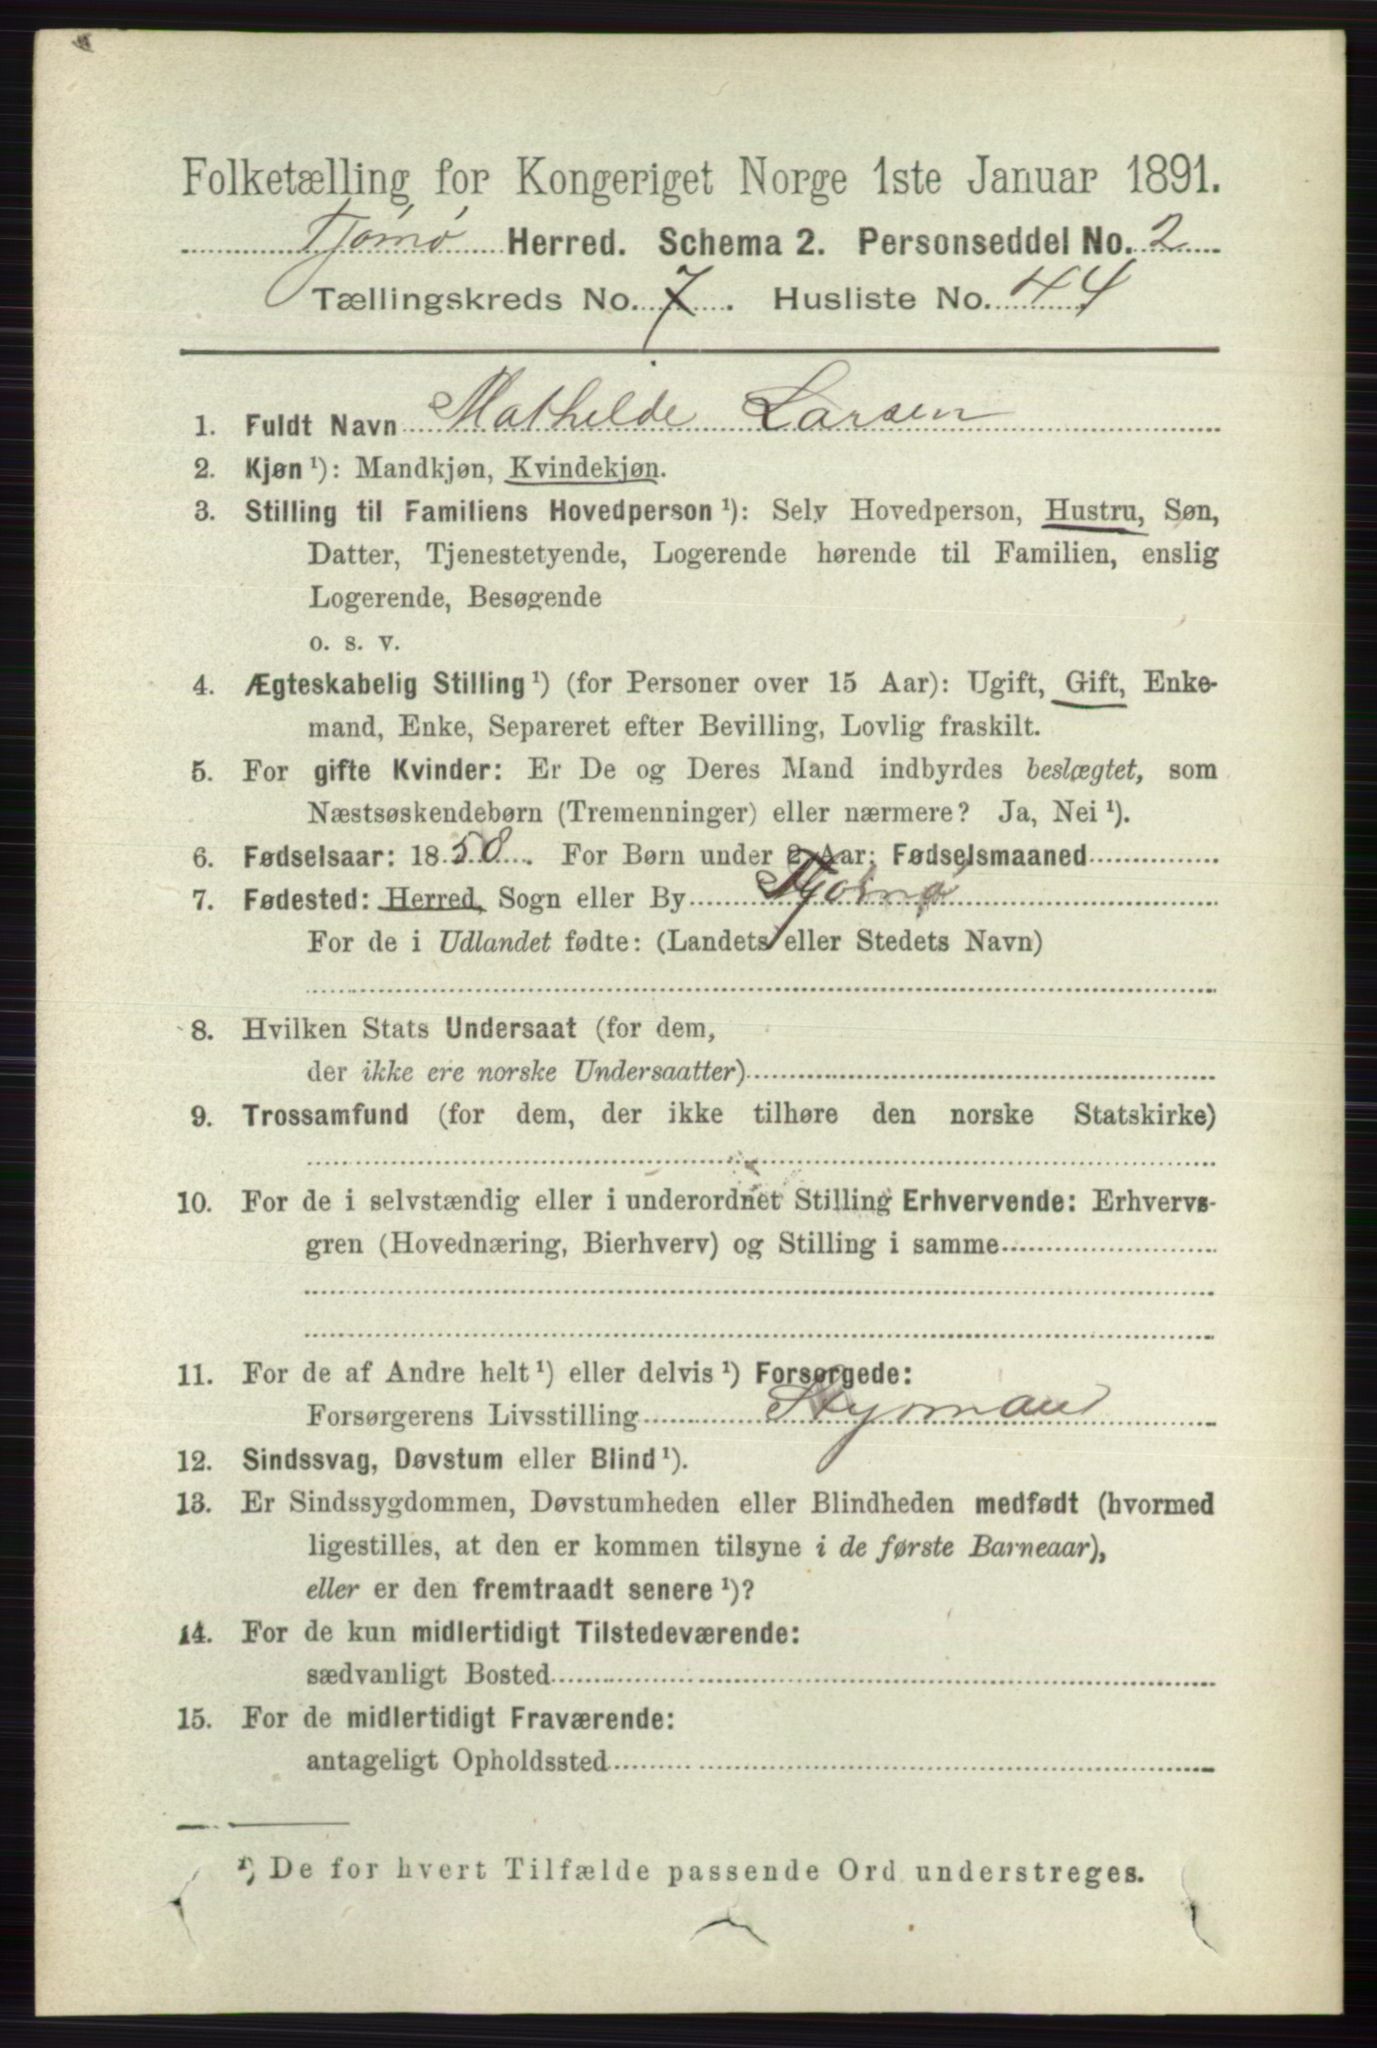 Folketælling for Kongeriget Norge 1ste Januar 1891.
Tjømø Herred. Schema 2. Personseddel No. 2
Tællingskreds No. 7. Husliste No. 44
1. Fuldt Navn Mathilde Larsen
2. Kjøn ¹): Mandkjøn, Kvindekjøn.
3. Stilling til Familiens Hovedperson ¹): Selv Hovedperson, Hustru, Søn,
Datter, Tjenestetyende, Logerende hørende til Familien, enslig
Logerende, Besøgende
o. s. v.
4. Ægteskabelig Stilling ¹) (for Personer over 15 Aar): Ugift, Gift, Enke-
mand, Enke, Separeret efter Bevilling, Lovlig fraskilt.
5. For gifte Kvinder: Er De og Deres Mand indbyrdes beslægtet, som
Næstsøskendebørn (Tremenninger) eller nærmere? Ja, Nei ¹).
6. Fødselsaar: 1850. For Børn under 2 Aar: Fødselsmaaned
7. Fødested: Herred, Sogn eller By Tjømø
For de i Udlandet fødte: (Landets eller Stedets Navn)
8. Hvilken Stats Undersaat (for dem,
der ikke ere norske Undersaatter)
9. Trossamfund (for dem, der ikke tilhøre den norske Statskirke)
10. For de i selvstændig eller i underordnet Stilling Erhvervende: Erhvervs-
gren (Hovednæring, Bierhverv) og Stilling i samme
11. For de af Andre helt ¹) eller delvis ¹) Forsørgede:
Forsørgerens Livsstilling Styrman
12. Sindssvag, Døvstum eller Blind ¹).
13. Er Sindssygdommen, Døvstumheden eller Blindheden medfødt (hvormed
ligestilles, at den er kommen tilsyne i de første Barneaar),
eller er den fremtraadt senere ¹)?
14. For de kun midlertidigt Tilstedeværende:
sædvanligt Bosted
15. For de midlertidigt Fraværende:
antageligt Opholdssted
¹) De for hvert Tilfælde passende Ord understreges.